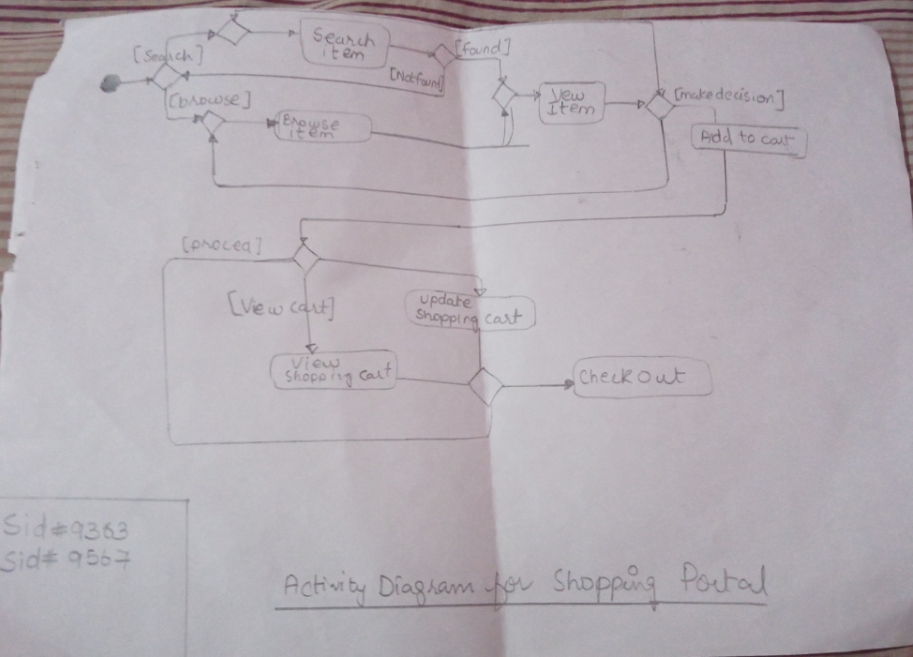 [Search]
Search
item
[found]
[Notfound]
[browse]
Browse
item
Vew
Item
[makedecision]
Add to cart
[procea]
[View cart]
update
Shopping cart
View
Shopping cart
Check Out
Sid#9363
Sid# 9567
Activity Diagram for Shopping Portal